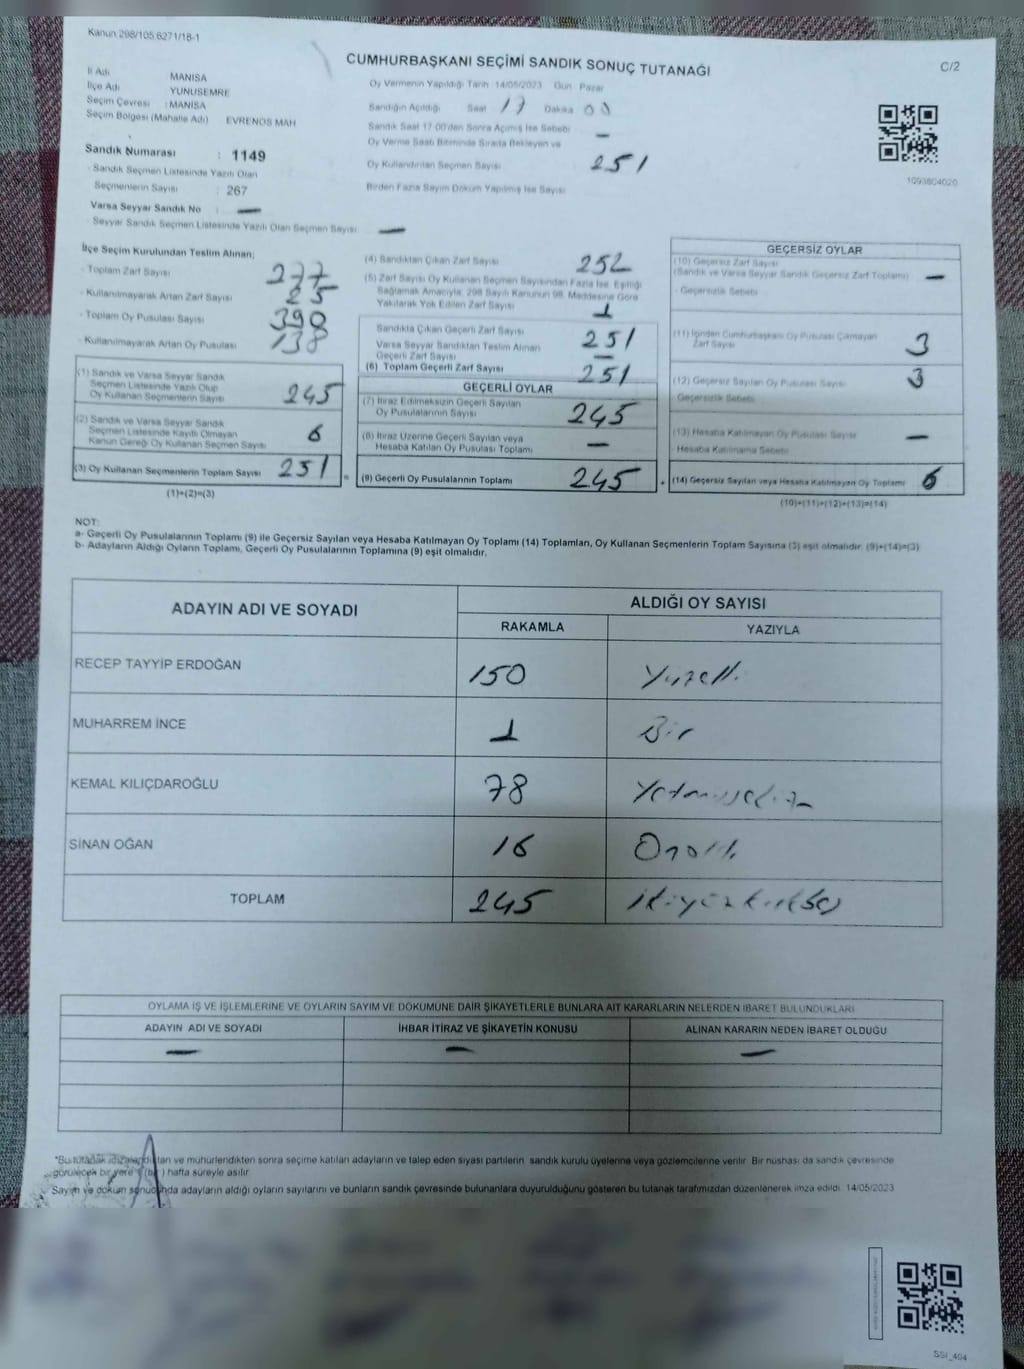 Kanun 298/105.6271/18-1
CUMHURBAŞKANI SEÇİMİ SANDIK SONUÇ TUTANAĞI
C/2
İl Adı MANİSA
İlçe Adı YUNUSEMRE
Seçim Çevresi : MANİSA
Seçim Bölgesi (Mahalle Adı) EVRENOS MAH
Sandık Numarası : 1149
- Sandık Seçmen Listesinde Yazılı Olan
Seçmenlerin Sayısı : 267
Varsa Seyyar Sandık No : —
- Seyyar Sandık Seçmen Listesinde Yazılı Olan Seçmen Sayısı —
Oy Vermenin Yapıldığı Tarih 14/05/2023 Gün Pazar
Sandığın Açıldığı Saat 17 Dakika 00
Sandık Saat 17.00'den Sonra Açılmış İse Sebebi —
Oy Verme Saati Bitiminde Sırada Bekleyen ve
Oy Kullandırılan Seçmen Sayısı 251
Birden Fazla Sayım Döküm Yapılmış İse Sayısı
1093804020
İlçe Seçim Kurulundan Teslim Alınan;
- Toplam Zarf Sayısı 277
- Kullanılmayarak Artan Zarf Sayısı 25
- Toplam Oy Pusulası Sayısı 390
- Kullanılmayarak Artan Oy Pusulası 138
(1) Sandık ve Varsa Seyyar Sandık
Seçmen Listesinde Yazılı Olup
Oy Kullanan Seçmenlerin Sayısı 245
(2) Sandık ve Varsa Seyyar Sandık
Seçmen Listesinde Kayıtlı Olmayan
Kanun Gereği Oy Kullanan Seçmen Sayısı 6
(3) Oy Kullanan Seçmenlerin Toplam Sayısı 251 =
(1)+(2)=(3)
(4) Sandıktan Çıkan Zarf Sayısı 252
(5) Zarf Sayısı Oy Kullanan Seçmen Sayısından Fazla İse, Eşitliği
Sağlamak Amacıyla, 298 Sayılı Kanunun 98. Maddesine Göre
Yakılarak Yok Edilen Zarf Sayısı 1
Sandıkta Çıkan Geçerli Zarf Sayısı 251
Varsa Seyyar Sandıktan Teslim Alınan
Geçerli Zarf Sayısı —
(6) Toplam Geçerli Zarf Sayısı 251
GEÇERLİ OYLAR
(7) İtiraz Edilmeksizin Geçerli Sayılan
Oy Pusulalarının Sayısı 245
(8) İtiraz Üzerine Geçerli Sayılan veya
Hesaba Katılan Oy Pusulası Toplamı —
(9) Geçerli Oy Pusulalarının Toplamı 245 +
GEÇERSİZ OYLAR
(10) Geçersiz Zarf Sayısı
(Sandık ve Varsa Seyyar Sandık Geçersiz Zarf Toplamı) —
- Geçersizlik Sebebi
(11) İçinden Cumhurbaşkanı Oy Pusulası Çıkmayan
Zarf Sayısı 3
(12) Geçersiz Sayılan Oy Pusulası Sayısı 3
Geçersizlik Sebebi
(13) Hesaba Katılmayan Oy Pusulası Sayısı —
- Hesaba Katılmama Sebebi
(14) Geçersiz Sayılan veya Hesaba Katılmayan Oy Toplamı 6
(10)+(11)+(12)+(13)=(14)
NOT:
a- Geçerli Oy Pusulalarının Toplamı (9) ile Geçersiz Sayılan veya Hesaba Katılmayan Oy Toplamı (14) Toplamları, Oy Kullanan Seçmenlerin Toplam Sayısına (3) eşit olmalıdır. (9)+(14)=(3)
b- Adayların Aldığı Oyların Toplamı, Geçerli Oy Pusulalarının Toplamına (9) eşit olmalıdır.
ADAYIN ADI VE SOYADI
ALDIĞI OY SAYISI
RAKAMLA YAZIYLA
RECEP TAYYİP ERDOĞAN 150 Yüzelli
MUHARREM İNCE 1 Bir
KEMAL KILIÇDAROĞLU 78 Yetmişsekiz
SİNAN OĞAN 16 Onaltı
TOPLAM 245 ikiyüzkırkbeş
OYLAMA İŞ VE İŞLEMLERİNE VE OYLARIN SAYIM VE DÖKÜMÜNE DAİR ŞİKAYETLERLE BUNLARA AİT KARARLARIN NELERDEN İBARET BULUNDUKLARI
ADAYIN ADI VE SOYADI İHBAR İTİRAZ VE ŞİKAYETİN KONUSU ALINAN KARARIN NEDEN İBARET OLDUĞU
— — —
*Bu tutanak imzalandıktan ve mühürlendikten sonra seçime katılan adayların ve talep eden siyasi partilerin sandık kurulu üyelerine veya gözlemcilerine verilir. Bir nüshası da sandık çevresinde
görülecek bir yere 1 (bir) hafta süreyle asılır.
Sayım ve döküm sonucunda adayların aldığı oyların sayılarını ve bunların sandık çevresinde bulunanlara duyurulduğunu gösteren bu tutanak tarafımızdan düzenlenerek imza edildi. 14/05/2023
SSI_404